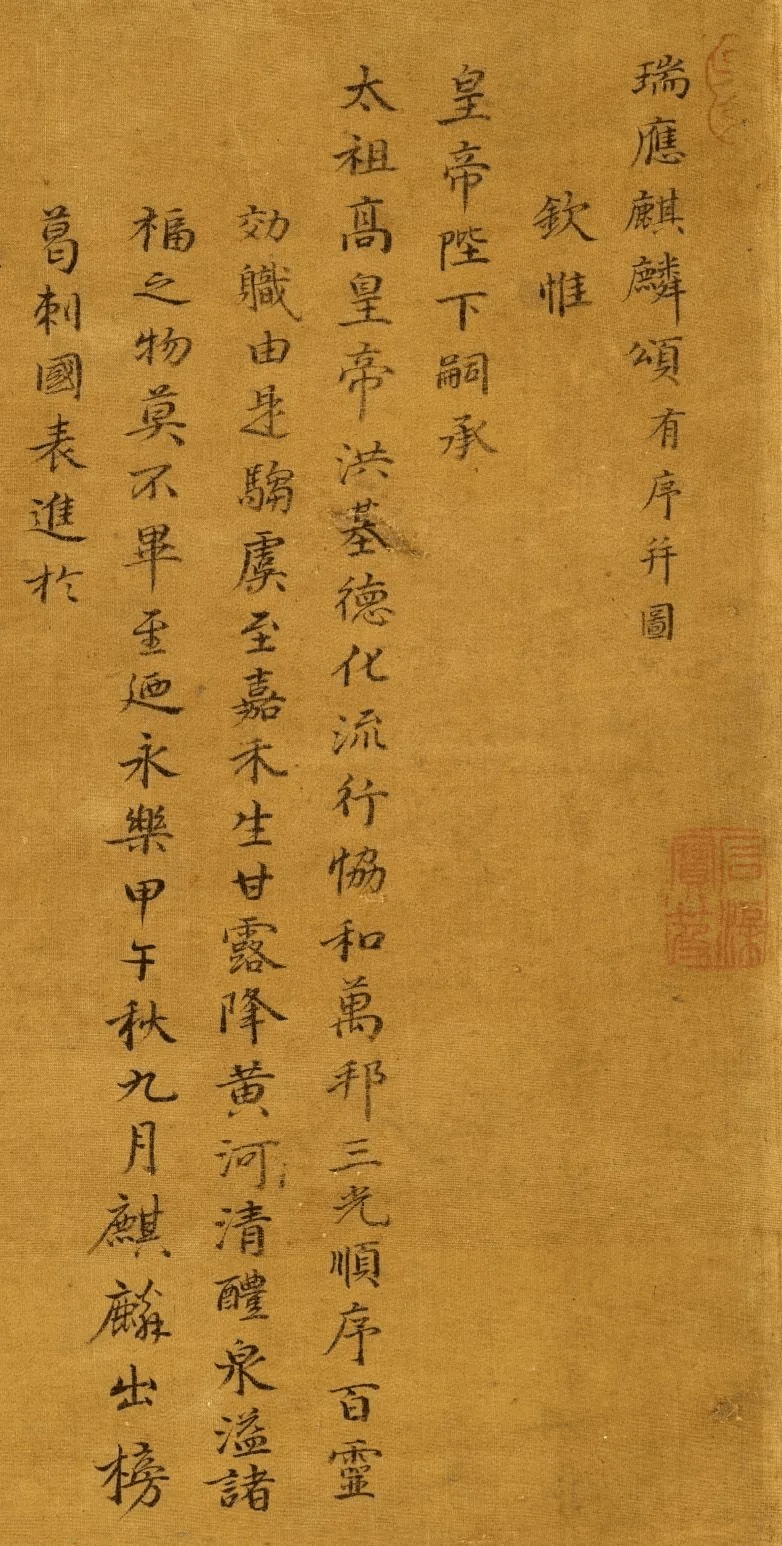 瑞應麒麟頌有序并圖
欽惟
皇帝陛下嗣承
太祖高皇帝洪基德化流行恊和萬邦三光順序百靈
効職由是騶虞至嘉禾生甘露降黃河清醴泉溢諸
福之物莫不畢至迺永樂甲午秋九月麒麟出榜
葛剌國表進於